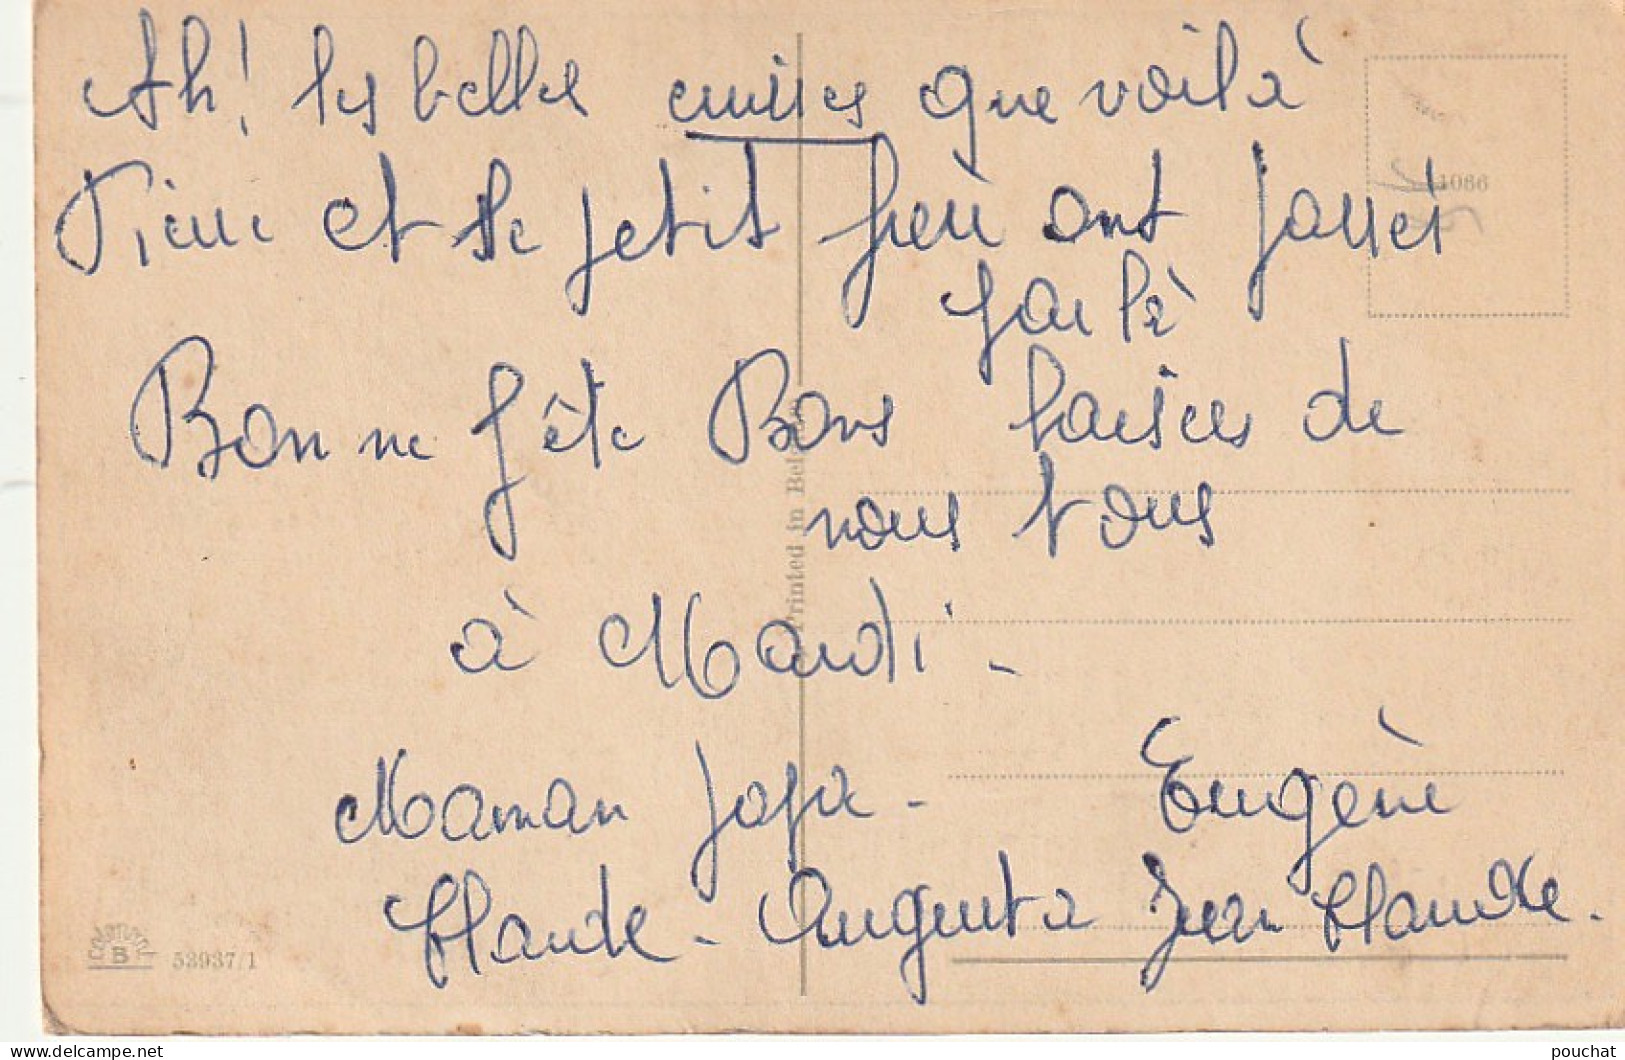 Ah! les belles cerises que voilà
Pierre et le petit frère ont passer
par là
Bonne fête Bons baisers de
nous tous
à Mardi -
Maman papa - Eugène
Claude - Augusta Jean Claude.
Printed in Bel
1086
colorprint
B
53937/1
pouchat